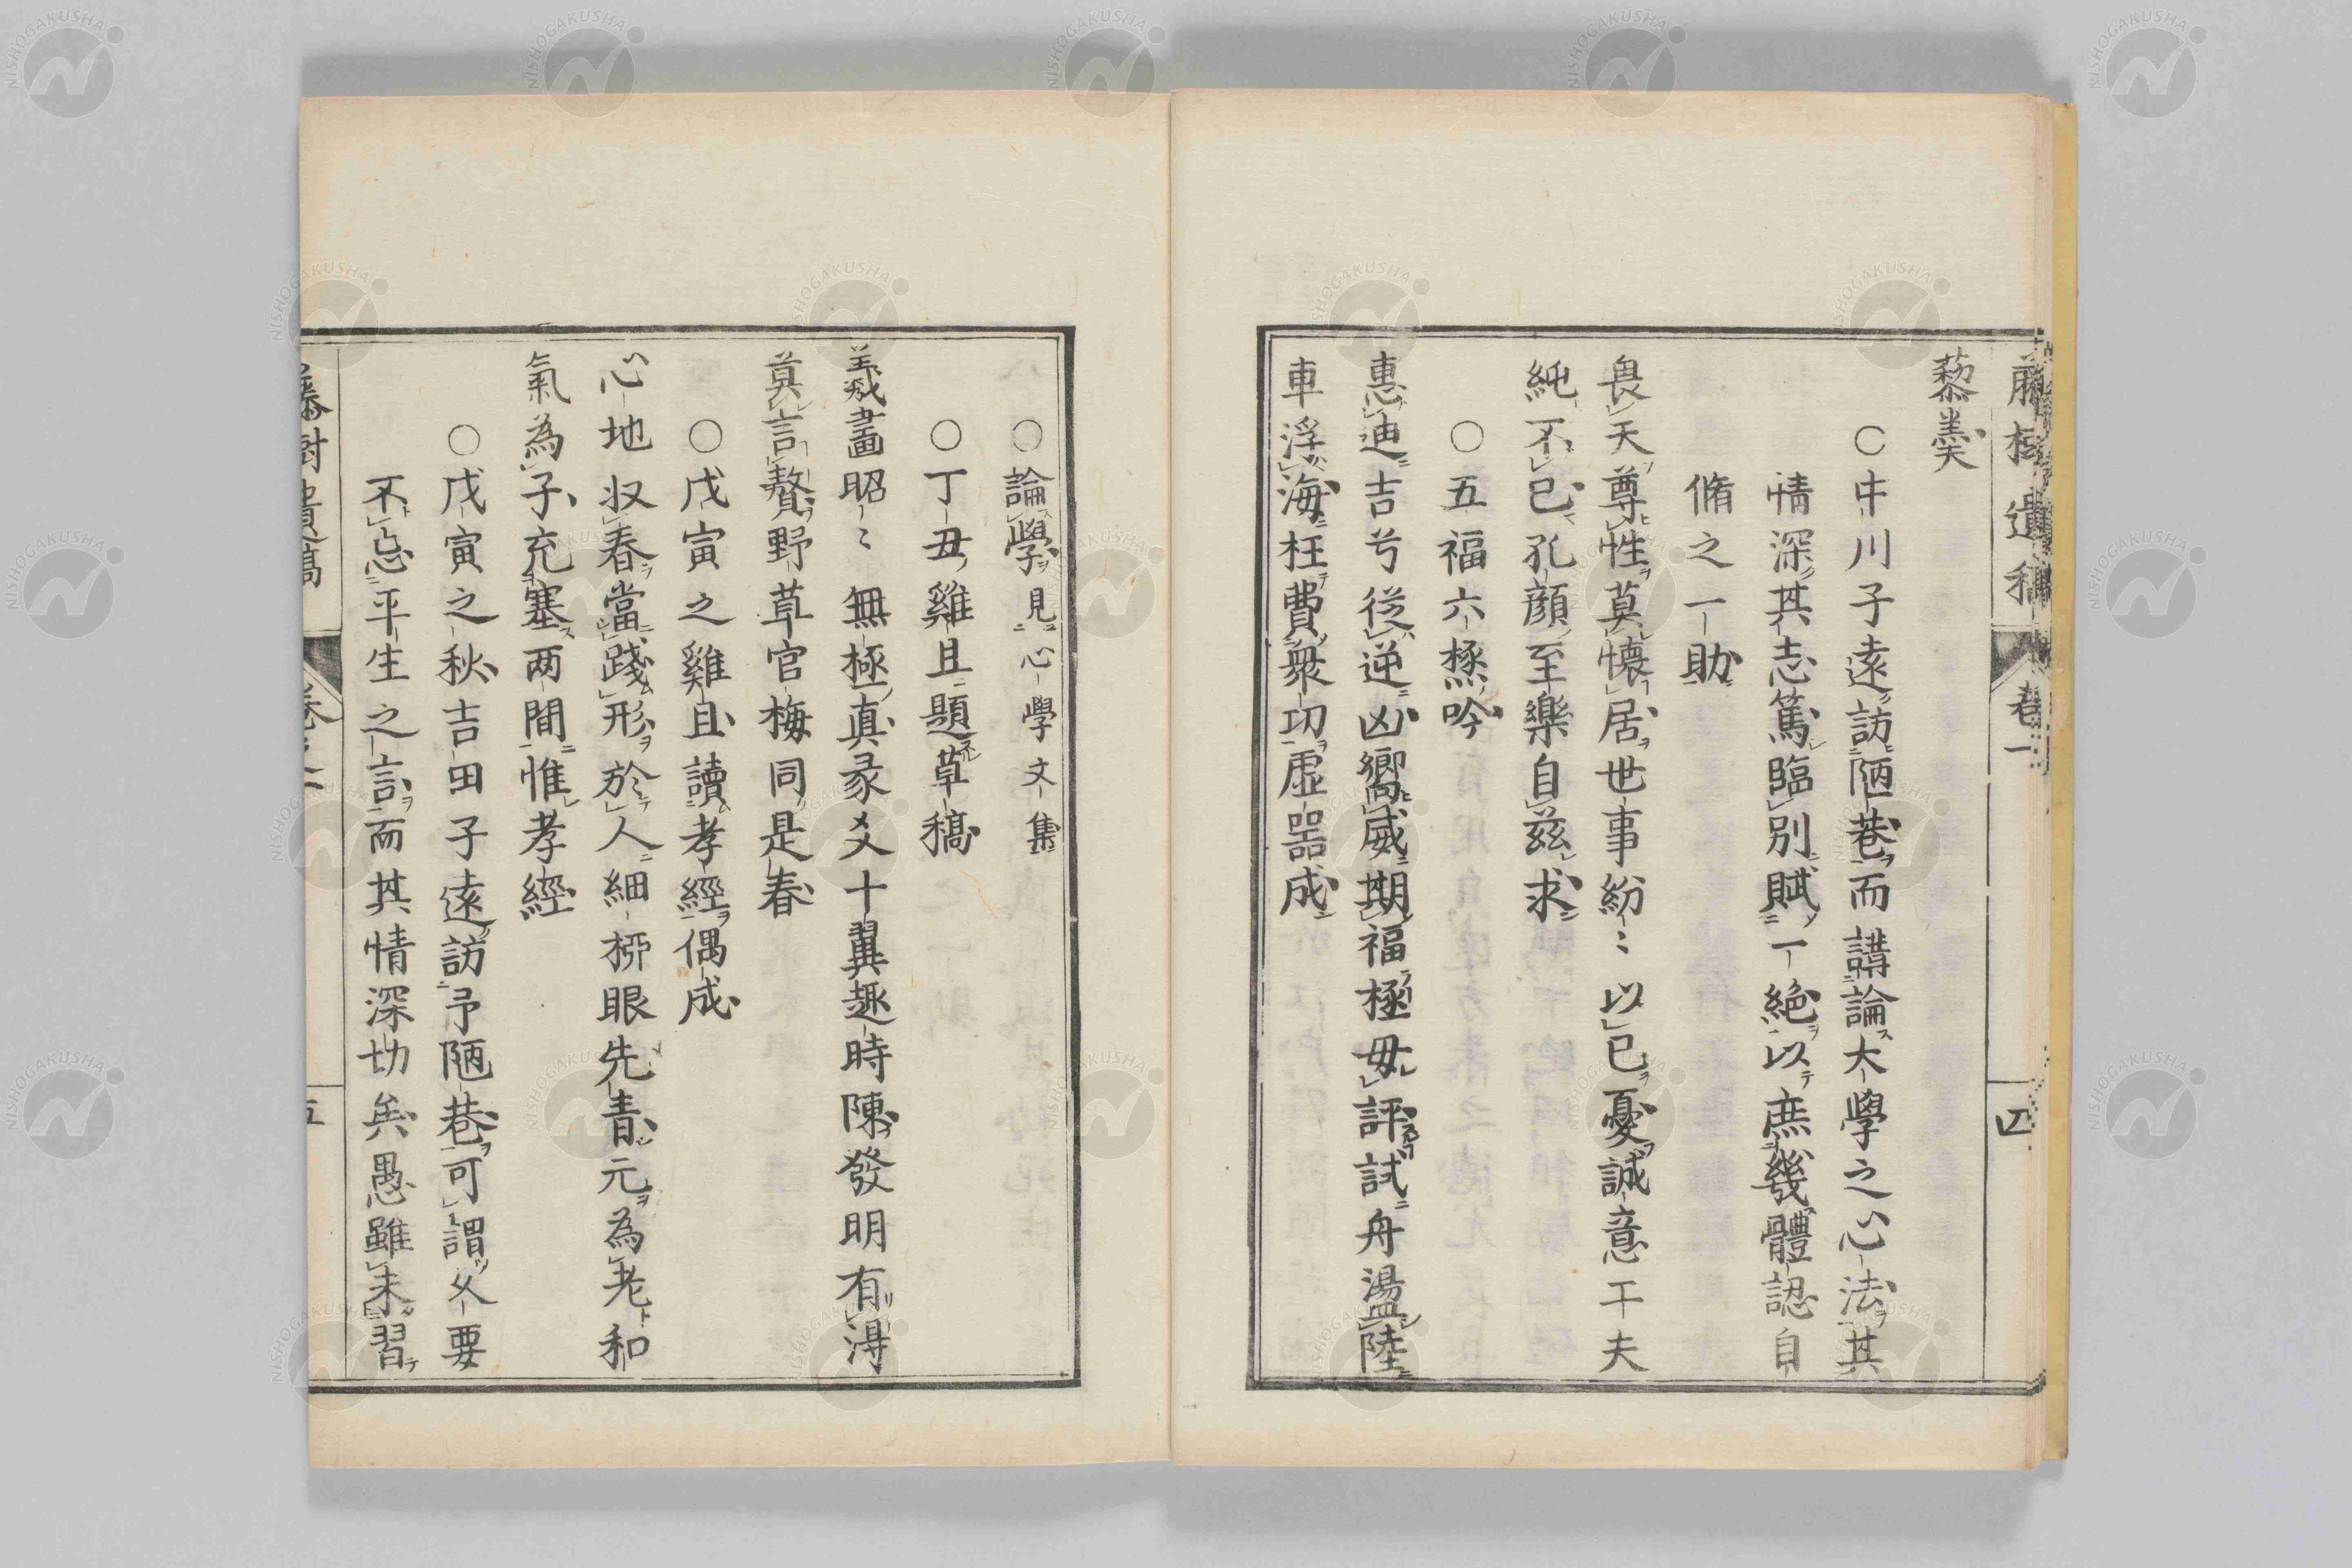 藜羹
○中川子遠訪陋巷而講論大學之心法其
情深其志篤臨別賦一絶以庶幾體認自
脩之一助
畏天尊性莫懷居世事紛〻以已憂誠意干夫
純不已孔顔至樂自兹求
○五福六極吟
惠迪吉兮從逆凶嚮威期福極毋評試舟盪陸
車浮海枉費衆功虚器成
藤樹遺稿 卷一 四
○論學見心學文集
○丁丑雞且題草稿
羲畫昭〻無極真彖爻十翼趣時陳發明有淂
莫言贅野草官梅同是春
○戊寅之雞且讀孝經偶成
心地収春當踐形於人細柳眼先青元為老和
氣為子充塞两間惟孝經
○戊寅之秋吉田子遠訪予陋巷可謂久要
不忘平生之言而其情深切矣愚雖未習
藤樹遺稿 卷之一 五
NISHOGAKUSHA